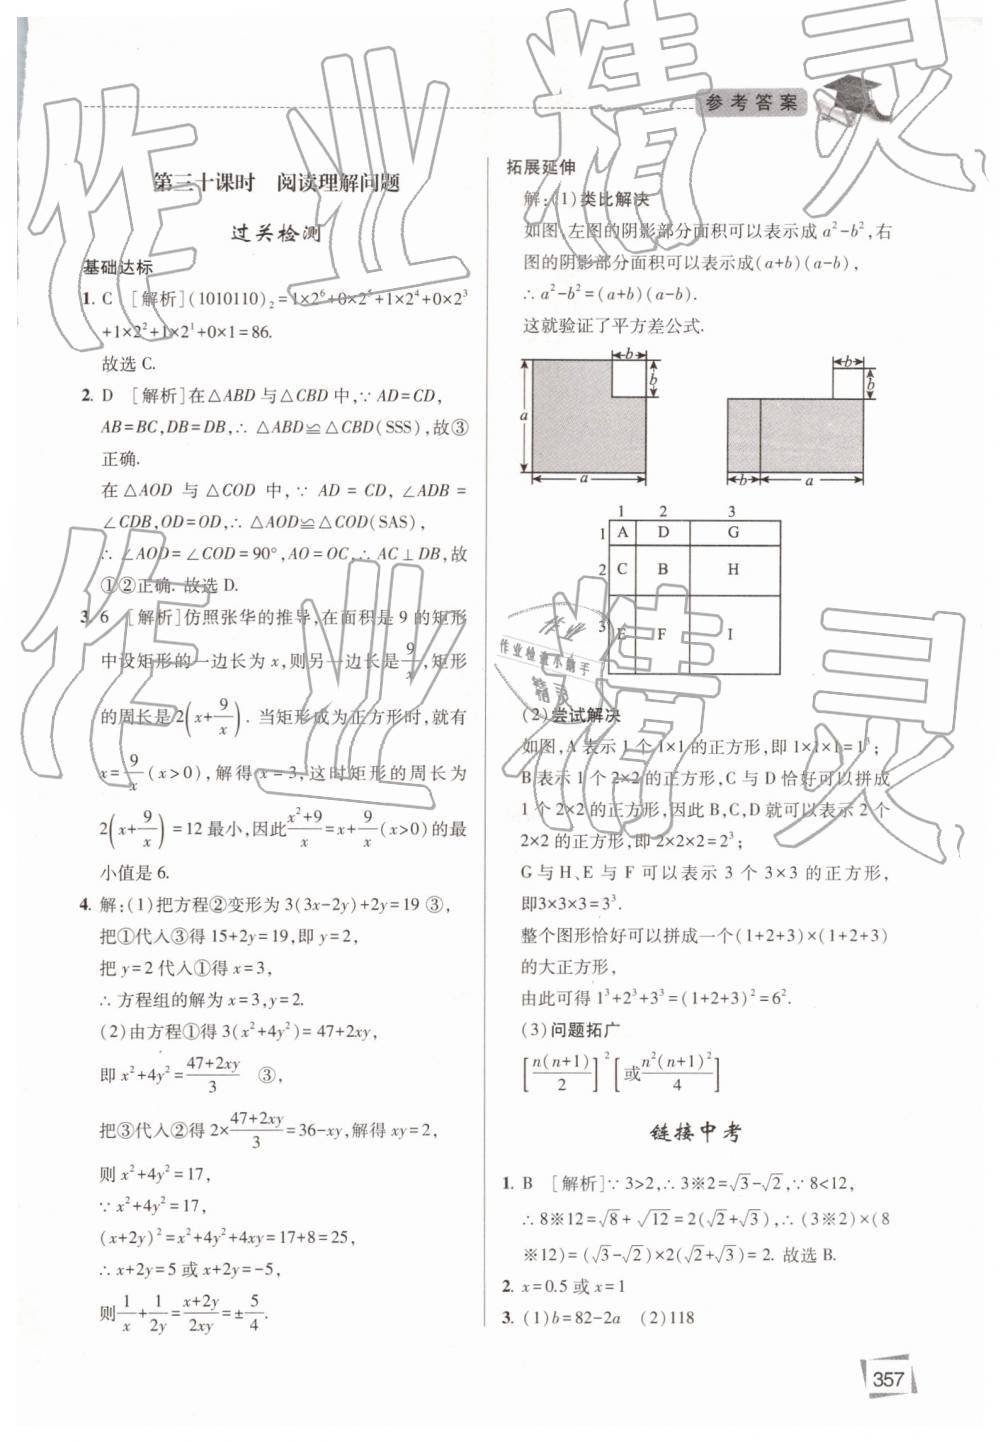 参考答案
第三十课时 阅读理解问题
过关检测
基础达标
1. C [解析](1010110)₂=1×2⁶+0×2⁵+1×2⁴+0×2³
+1×2²+1×2¹+0×1=86.
故选 C.
2. D [解析]在△ABD 与△CBD 中,∵ AD=CD,
AB=BC,DB=DB,∴ △ABD≌△CBD(SSS),故③
正确.
在△AOD 与△COD 中,∵ AD=CD,∠ADB=
∠CDB,OD=OD,∴ △AOD≌△COD(SAS),
∴ ∠AOD=∠COD=90°,AO=OC,∴ AC⊥DB,故
①②正确. 故选 D.
3. 6 [解析]仿照张华的推导,在面积是 9 的矩形
中设矩形的一边长为 x,则另一边长是9/x,矩形
的周长是 2(x+9/x). 当矩形成为正方形时,就有
x=9/x(x>0),解得 x=3,这时矩形的周长为
2(x+9/x)=12 最小,因此(x²+9)/x=x+9/x(x>0)的最
小值是 6.
4. 解:(1)把方程②变形为 3(3x-2y)+2y=19 ③,
把①代入③得 15+2y=19,即 y=2,
把 y=2 代入①得 x=3,
∴ 方程组的解为 x=3,y=2.
(2)由方程①得 3(x²+4y²)=47+2xy,
即 x²+4y²=(47+2xy)/3 ③,
把③代入②得 2×(47+2xy)/3=36-xy,解得 xy=2,
则 x²+4y²=17,
∵ x²+4y²=17,
(x+2y)²=x²+4y²+4xy=17+8=25,
∴ x+2y=5 或 x+2y=-5,
则1/x+1/2y=(x+2y)/2xy=±5/4.
拓展延伸
解:(1)类比解决
如图,左图的阴影部分面积可以表示成 a²-b²,右
图的阴影部分面积可以表示成(a+b)(a-b),
∴ a²-b²=(a+b)(a-b).
这就验证了平方差公式.
b b
b b
a
a b a
1 2 3
1 A D G
2 C B H
3 E F I
(2)尝试解决
如图,A 表示 1 个 1×1 的正方形,即 1×1×1=1³;
B 表示 1 个 2×2 的正方形,C 与 D 恰好可以拼成
1 个 2×2 的正方形,因此 B,C,D 就可以表示 2 个
2×2 的正方形,即 2×2×2=2³;
G 与 H、E 与 F 可以表示 3 个 3×3 的正方形,
即3×3×3=3³.
整个图形恰好可以拼成一个(1+2+3)×(1+2+3)
的大正方形,
由此可得 1³+2³+3³=(1+2+3)²=6².
(3)问题拓广
[n(n+1)/2]²[或n²(n+1)²/4]
链接中考
1. B [解析]∵ 3>2,∴ 3※2=√3-√2,∵ 8<12,
∴ 8※12=√8+√12=2(√2+√3),∴ (3※2)×(8
※12)=(√3-√2)×2(√2+√3)=2. 故选 B.
2. x=0.5 或 x=1
3. (1)b=82-2a (2)118
357
作业精灵
作业精灵
作业
作业检查小助手
精灵